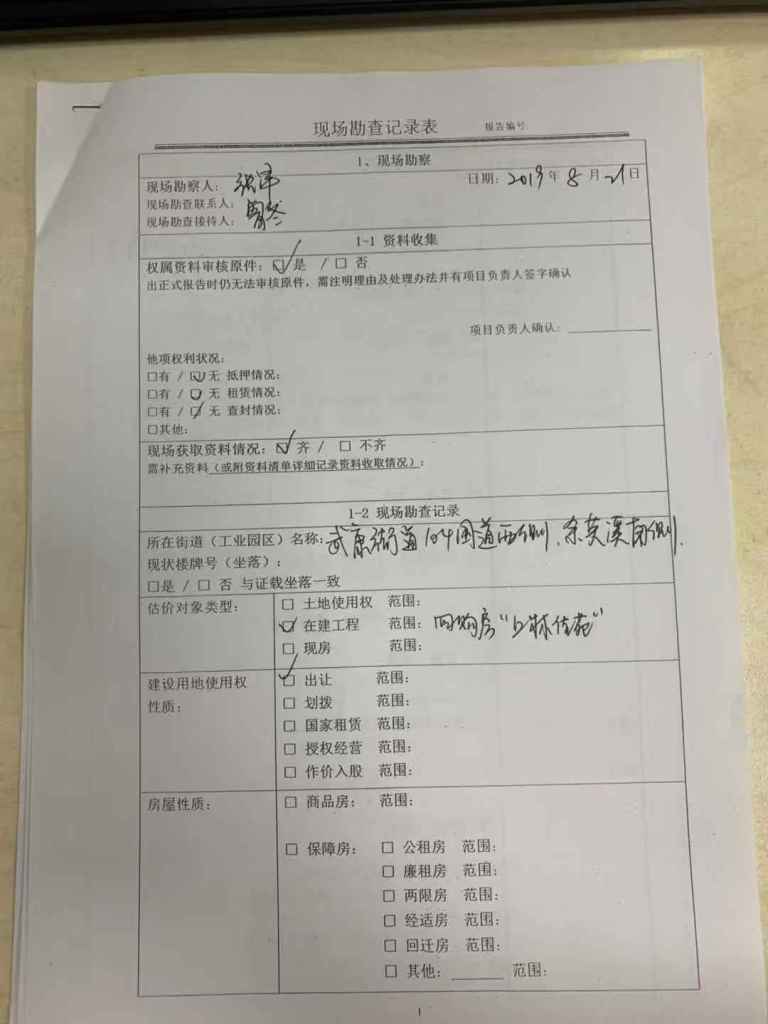 现场勘查记录表 报告编号
1、现场勘察
现场勘察人： 日期：2019年8月21日
现场勘查联系人：
现场勘查接待人：
1-1 资料收集
权属资料审核原件：☑是 / □ 否
出正式报告时仍无法审核原件，需注明理由及处理办法并有项目负责人签字确认
项目负责人确认：
他项权利状况：
□有 / ☑无 抵押情况：
□有 / ☑无 租赁情况：
□有 / ☑无 查封情况：
□其他：
现场获取资料情况：☑ 齐 / □ 不齐
需补充资料（或附资料清单详细记录资料收取情况）：
1-2 现场勘查记录
所在街道（工业园区）名称：武康街道104国道西侧、余英溪南侧.
现状楼牌号（坐落）：
□是 / □ 否 与证载坐落一致
估价对象类型： □ 土地使用权 范围：
☑ 在建工程 范围：回购房“上林佳苑”
□ 现房 范围：
建设用地使用权性质： ☑ 出让 范围：
□ 划拨 范围：
□ 国家租赁 范围：
□ 授权经营 范围：
□ 作价入股 范围：
房屋性质： □ 商品房： 范围：
□ 保障房： □ 公租房 范围：
□ 廉租房 范围：
□ 两限房 范围：
□ 经适房 范围：
□ 回迁房 范围：
□ 其他：______ 范围：
1